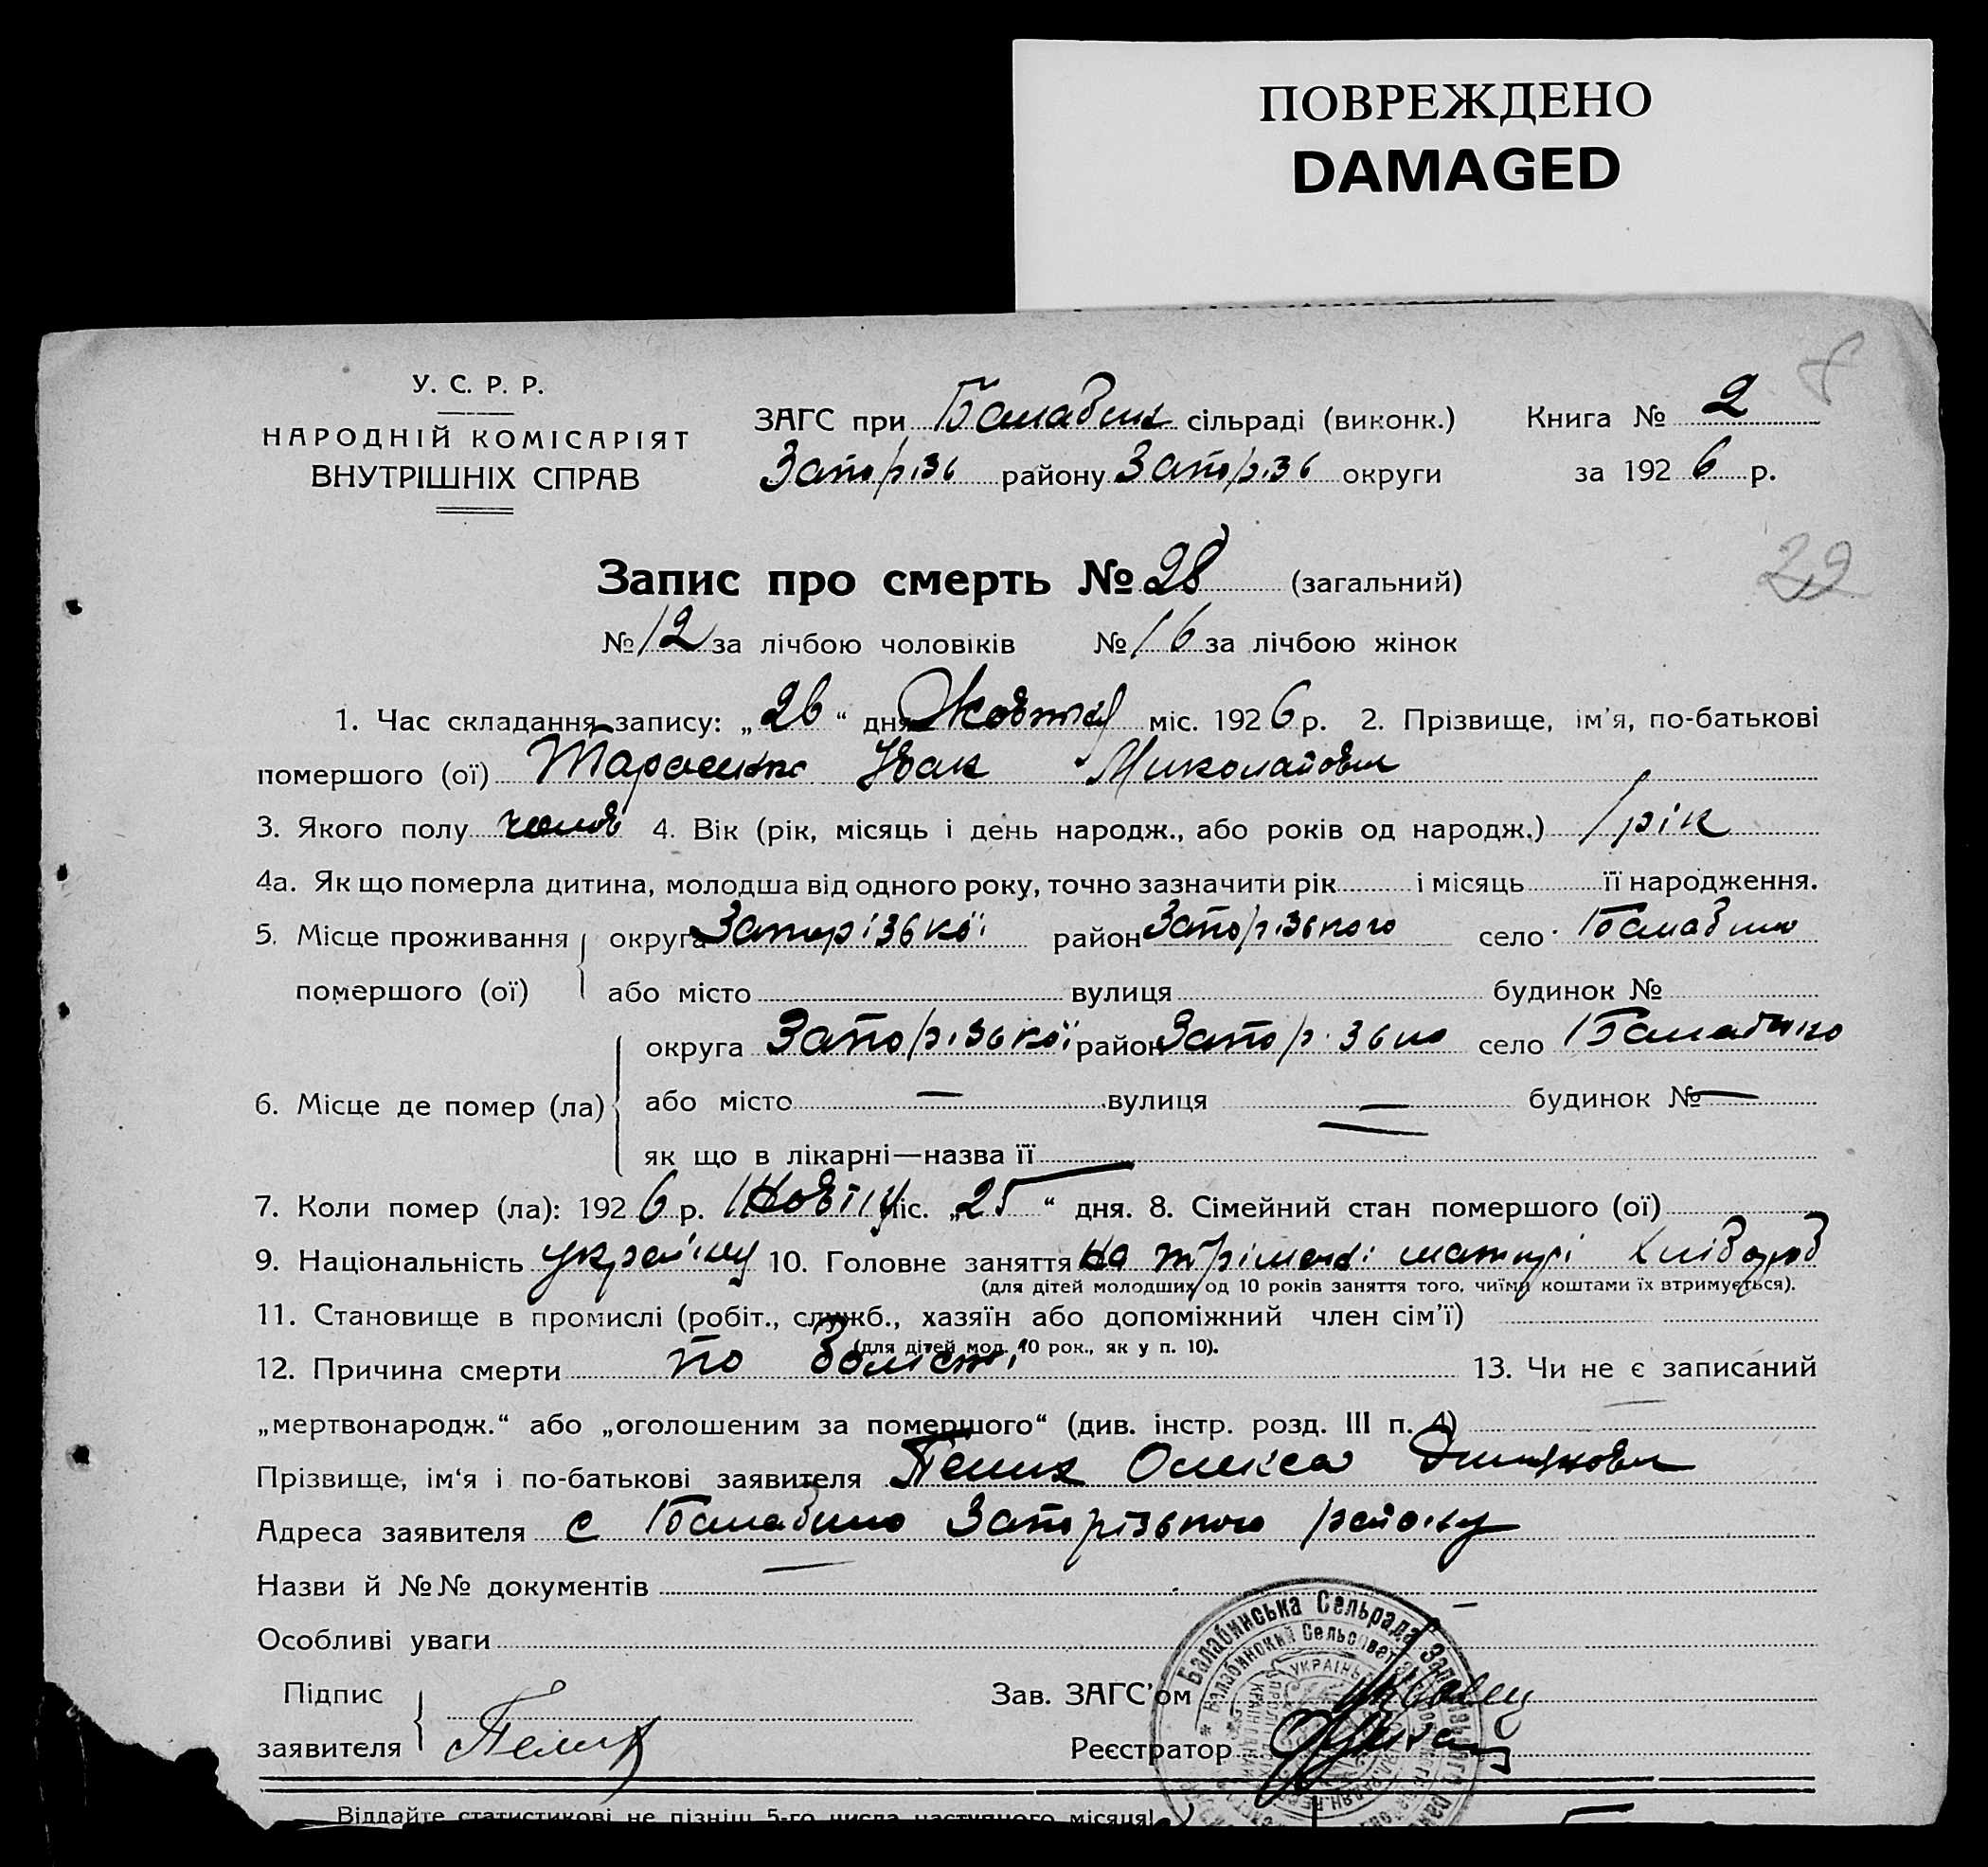 ПОВРЕЖДЕНО
DAMAGED
У. С. Р. Р.
НАРОДНІЙ КОМІСАРІЯТ
ВНУТРІШНІХ СПРАВ
ЗАГС при Балабин сільраді (виконк.)
Запорізь району Запорізь округи
Книга № 2
за 1926 р.
8
22
Запис про смерть № 28 (загальний)
№ 12 за лічбою чоловіків № 16 за лічбою жінок
1. Час складання запису: „26“ дня Жовтня міс. 1926 р. 2. Прізвище, ім'я, по-батькові
помершого (ої) Тараненко Іван Миколайович
3. Якого полу чолов 4. Вік (рік, місяць і день народж., або років од народж.) 1 рік
4а. Як що померла дитина, молодша від одного року, точно зазначити рік і місяць її народження.
5. Місце проживання помершого (ої) округа Запорізької район Запорізького село Балабино
або місто вулиця будинок №
6. Місце де помер (ла) округа Запорізької район Запорізько село Балабино
або місто — вулиця — будинок № —
як що в лікарні—назва її —
7. Коли помер (ла): 1926 р. Жовтня міс. „25“ дня. 8. Сімейний стан помершого (ої)
9. Національність україну 10. Головне заняття на тріманні матері хлібороб
(для дітей молодших од 10 років заняття того, чиїми коштами їх втримується).
11. Становище в промислі (робіт., служб., хазяїн або допоміжний член сім'ї)
(для дітей мол. 10 рок., як у п. 10).
12. Причина смерти по болісті 13. Чи не є записаний
„мертвонародж.“ або „оголошеним за помершого“ (див. інстр. розд. III п. 4) —
Прізвище, ім'я і по-батькові заявителя Пелих Олекса
Адреса заявителя с Балабино Запорізького району
Назви й №№ документів —
Особливі уваги
Підпис заявителя Пелих
Зав. ЗАГС'ом
Реєстратор
Балабинська Сельрада Запорізького
Балабинский Сельсовет
Віддайте статистикові не пізніш 5-го числа наступного місяця!